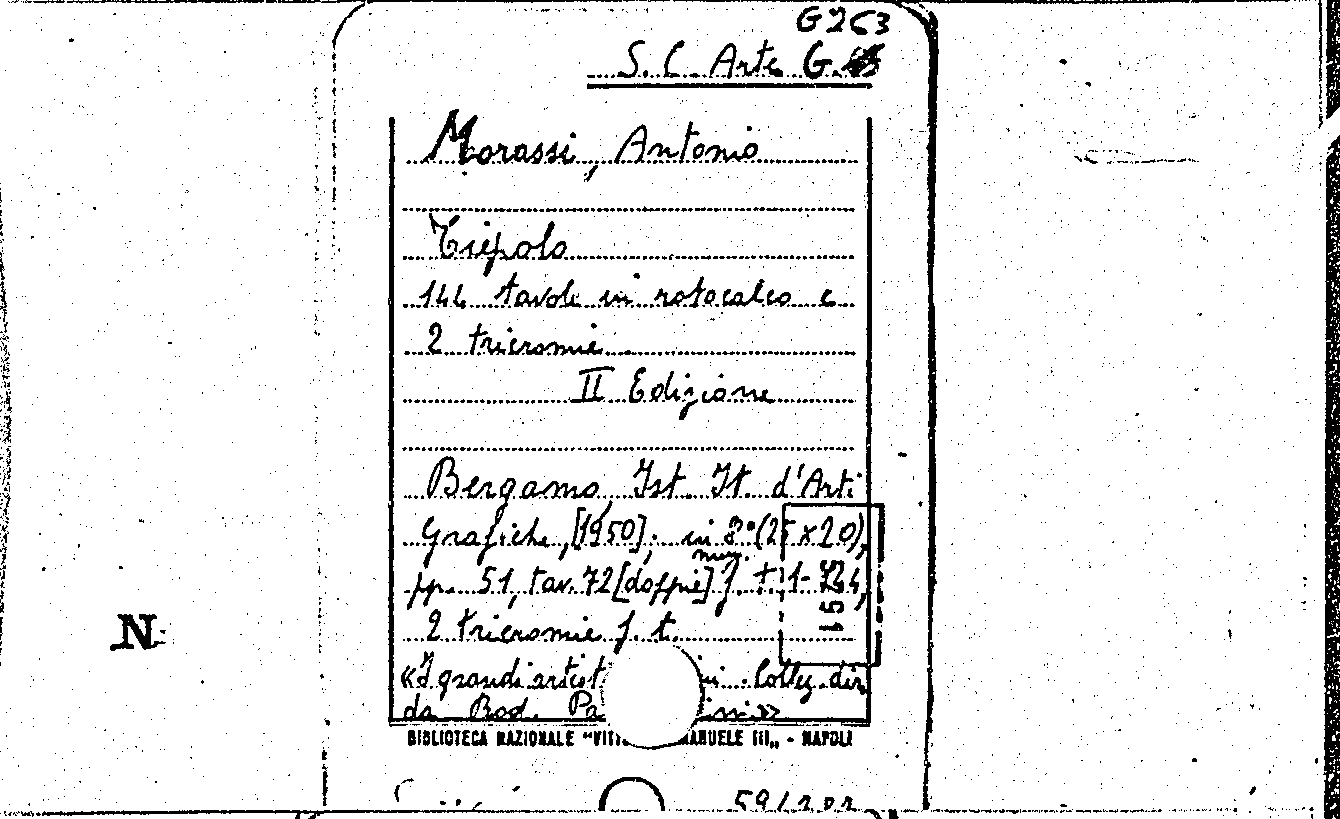 G 263
S. C. Arte G.
Morassi, Antonio
Tiepolo
144 tavole in rotocalco e
2 tricromie
II Edizione
Bergamo, Ist. It. d'Arti
Grafiche, [1950], in 8° (25 x 20),
num.
pp. 51, tav. 72 [doppie] f. t. 1-144,
2 tricromie f. t.
«I grandi artist ni. Collez. dir.
da Rod. Pa ini»
BIBLIOTECA NAZIONALE "VITT MANUELE III„ - NAPOLI
N